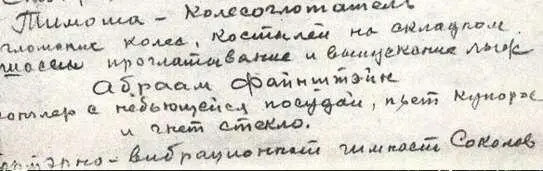 Тимоша - Колесоглотатель
колес, костылей на складном
шоссе, проглатывание и выпускание лыж
Абраам Файнштэйн
с небьющейся посудой, пьет купорос
и гнет стекло.
вибрационный гимнаст Соколов